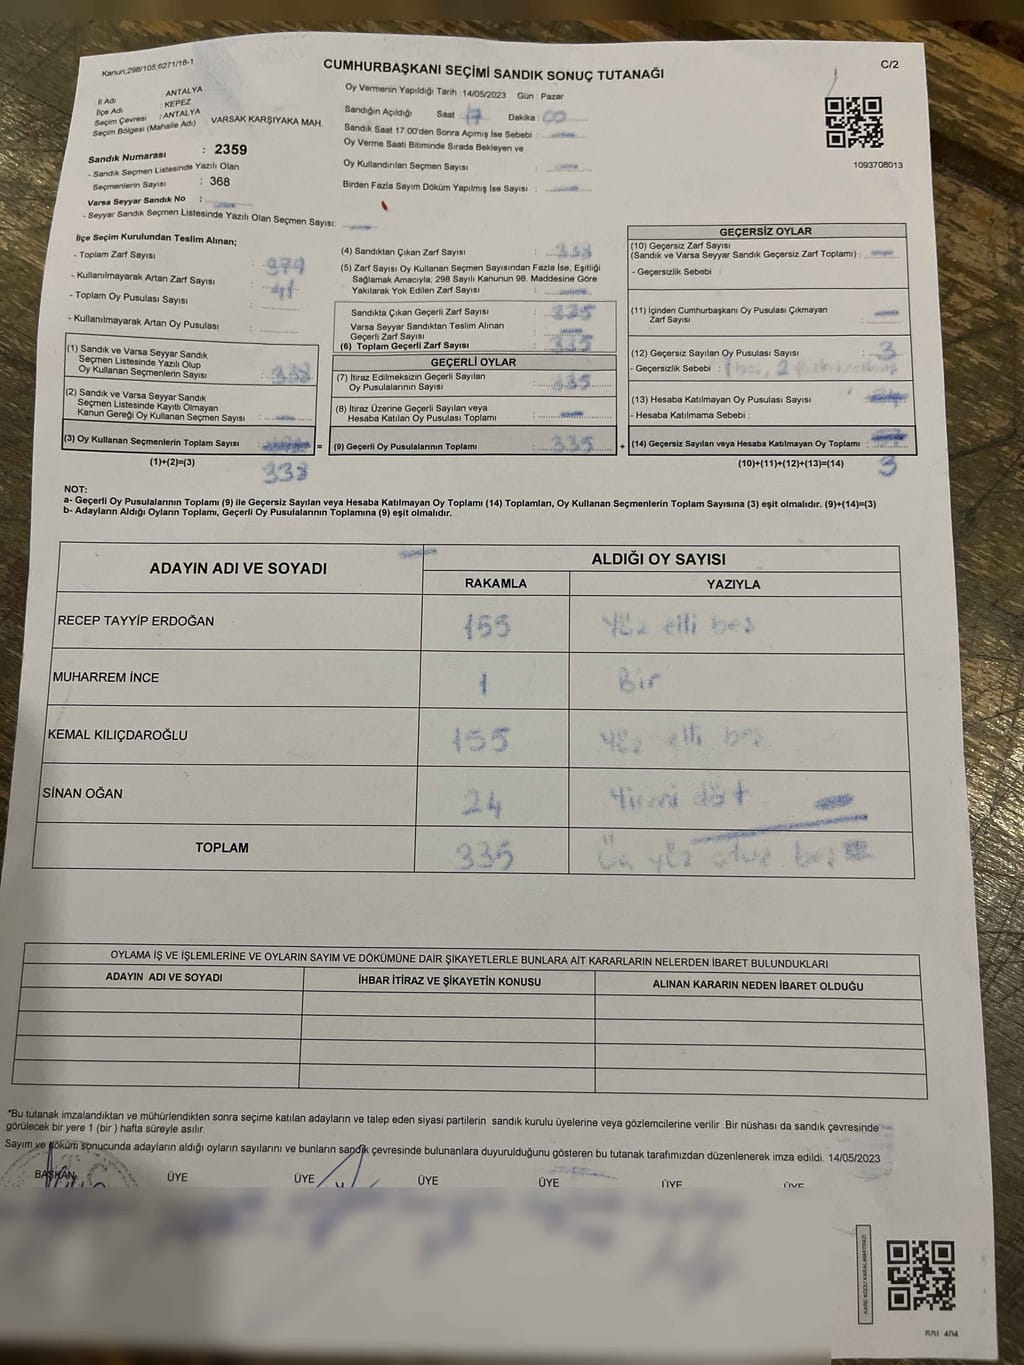 Kanun;298/105,6271/18-1
CUMHURBAŞKANI SEÇİMİ SANDIK SONUÇ TUTANAĞI
C/2
İl Adı ANTALYA
İlçe Adı : KEPEZ
Seçim Çevresi : ANTALYA
Seçim Bölgesi (Mahalle Adı) VARSAK KARŞIYAKA MAH.
Sandık Numarası : 2359
- Sandık Seçmen Listesinde Yazılı Olan
Seçmenlerin Sayısı : 368
Varsa Seyyar Sandık No :
- Seyyar Sandık Seçmen Listesinde Yazılı Olan Seçmen Sayısı:
Oy Vermenin Yapıldığı Tarih : 14/05/2023 Gün : Pazar
Sandığın Açıldığı Saat : 17 Dakika : 00
Sandık Saat 17:00'den Sonra Açımış İse Sebebi :
Oy Verme Saati Bitiminde Sırada Bekleyen ve
Oy Kullandırılan Seçmen Sayısı :
Birden Fazla Sayım Döküm Yapılmış İse Sayısı :
1093706013
İlçe Seçim Kurulundan Teslim Alınan;
- Toplam Zarf Sayısı : 379
- Kullanılmayarak Artan Zarf Sayısı : 41
- Toplam Oy Pusulası Sayısı :
- Kullanılmayarak Artan Oy Pusulası :
(1) Sandık ve Varsa Seyyar Sandık
Seçmen Listesinde Yazılı Olup
Oy Kullanan Seçmenlerin Sayısı : 338
(2) Sandık ve Varsa Seyyar Sandık
Seçmen Listesinde Kayıtlı Olmayan
Kanun Gereği Oy Kullanan Seçmen Sayısı :
(3) Oy Kullanan Seçmenlerin Toplam Sayısı :
(1)+(2)=(3) 338
(4) Sandıktan Çıkan Zarf Sayısı : 338
(5) Zarf Sayısı Oy Kullanan Seçmen Sayısından Fazla İse, Eşitliği
Sağlamak Amacıyla; 298 Sayılı Kanunun 98. Maddesine Göre
Yakılarak Yok Edilen Zarf Sayısı :
Sandıkta Çıkan Geçerli Zarf Sayısı : 335
Varsa Seyyar Sandıktan Teslim Alınan
Geçerli Zarf Sayısı :
(6) Toplam Geçerli Zarf Sayısı : 335
GEÇERLİ OYLAR
(7) İtiraz Edilmeksizin Geçerli Sayılan
Oy Pusulalarının Sayısı : 335
(8) İtiraz Üzerine Geçerli Sayılan veya
Hesaba Katılan Oy Pusulaları Toplamı :
= (9) Geçerli Oy Pusulalarının Toplamı : 335 +
GEÇERSİZ OYLAR
(10) Geçersiz Zarf Sayısı
(Sandık ve Varsa Seyyar Sandık Geçersiz Zarf Toplamı) :
- Geçersizlik Sebebi :
(11) İçinden Cumhurbaşkanı Oy Pusulası Çıkmayan
Zarf Sayısı :
(12) Geçersiz Sayılan Oy Pusulası Sayısı : 3
- Geçersizlik Sebebi : 1 boş, 2
(13) Hesaba Katılmayan Oy Pusulası Sayısı :
- Hesaba Katılmama Sebebi :
(14) Geçersiz Sayılan veya Hesaba Katılmayan Oy Toplamı :
(10)+(11)+(12)+(13)=(14) 3
NOT:
a- Geçerli Oy Pusulalarının Toplamı (9) ile Geçersiz Sayılan veya Hesaba Katılmayan Oy Toplamı (14) Toplamları, Oy Kullanan Seçmenlerin Toplam Sayısına (3) eşit olmalıdır. (9)+(14)=(3)
b- Adayların Aldığı Oyların Toplamı, Geçerli Oy Pusulalarının Toplamına (9) eşit olmalıdır.
ADAYIN ADI VE SOYADI ALDIĞI OY SAYISI
RAKAMLA YAZIYLA
RECEP TAYYİP ERDOĞAN 155 Yüz elli beş
MUHARREM İNCE 1 Bir
KEMAL KILIÇDAROĞLU 155 Yüz elli beş
SİNAN OĞAN 24 Yirmi dört
TOPLAM 335 Üç yüz otuz beş
OYLAMA İŞ VE İŞLEMLERİNE VE OYLARIN SAYIM VE DÖKÜMÜNE DAİR ŞİKAYETLERLE BUNLARA AİT KARARLARIN NELERDEN İBARET BULUNDUKLARI
ADAYIN ADI VE SOYADI İHBAR İTİRAZ VE ŞİKAYETİN KONUSU ALINAN KARARIN NEDEN İBARET OLDUĞU
*Bu tutanak imzalandıktan ve mühürlendikten sonra seçime katılan adayların ve talep eden siyasi partilerin sandık kurulu üyelerine veya gözlemcilerine verilir. Bir nüshası da sandık çevresinde
görülecek bir yere 1 (bir ) hafta süreyle asılır.
Sayım ve döküm sonucunda adayların aldığı oyların sayılarını ve bunların sandık çevresinde bulunanlara duyurulduğunu gösteren bu tutanak tarafımızdan düzenlenerek imza edildi. 14/05/2023
BAŞKAN ÜYE ÜYE ÜYE ÜYE ÜYE ÜYE
KARE KODU KARALAMAYINIZ!